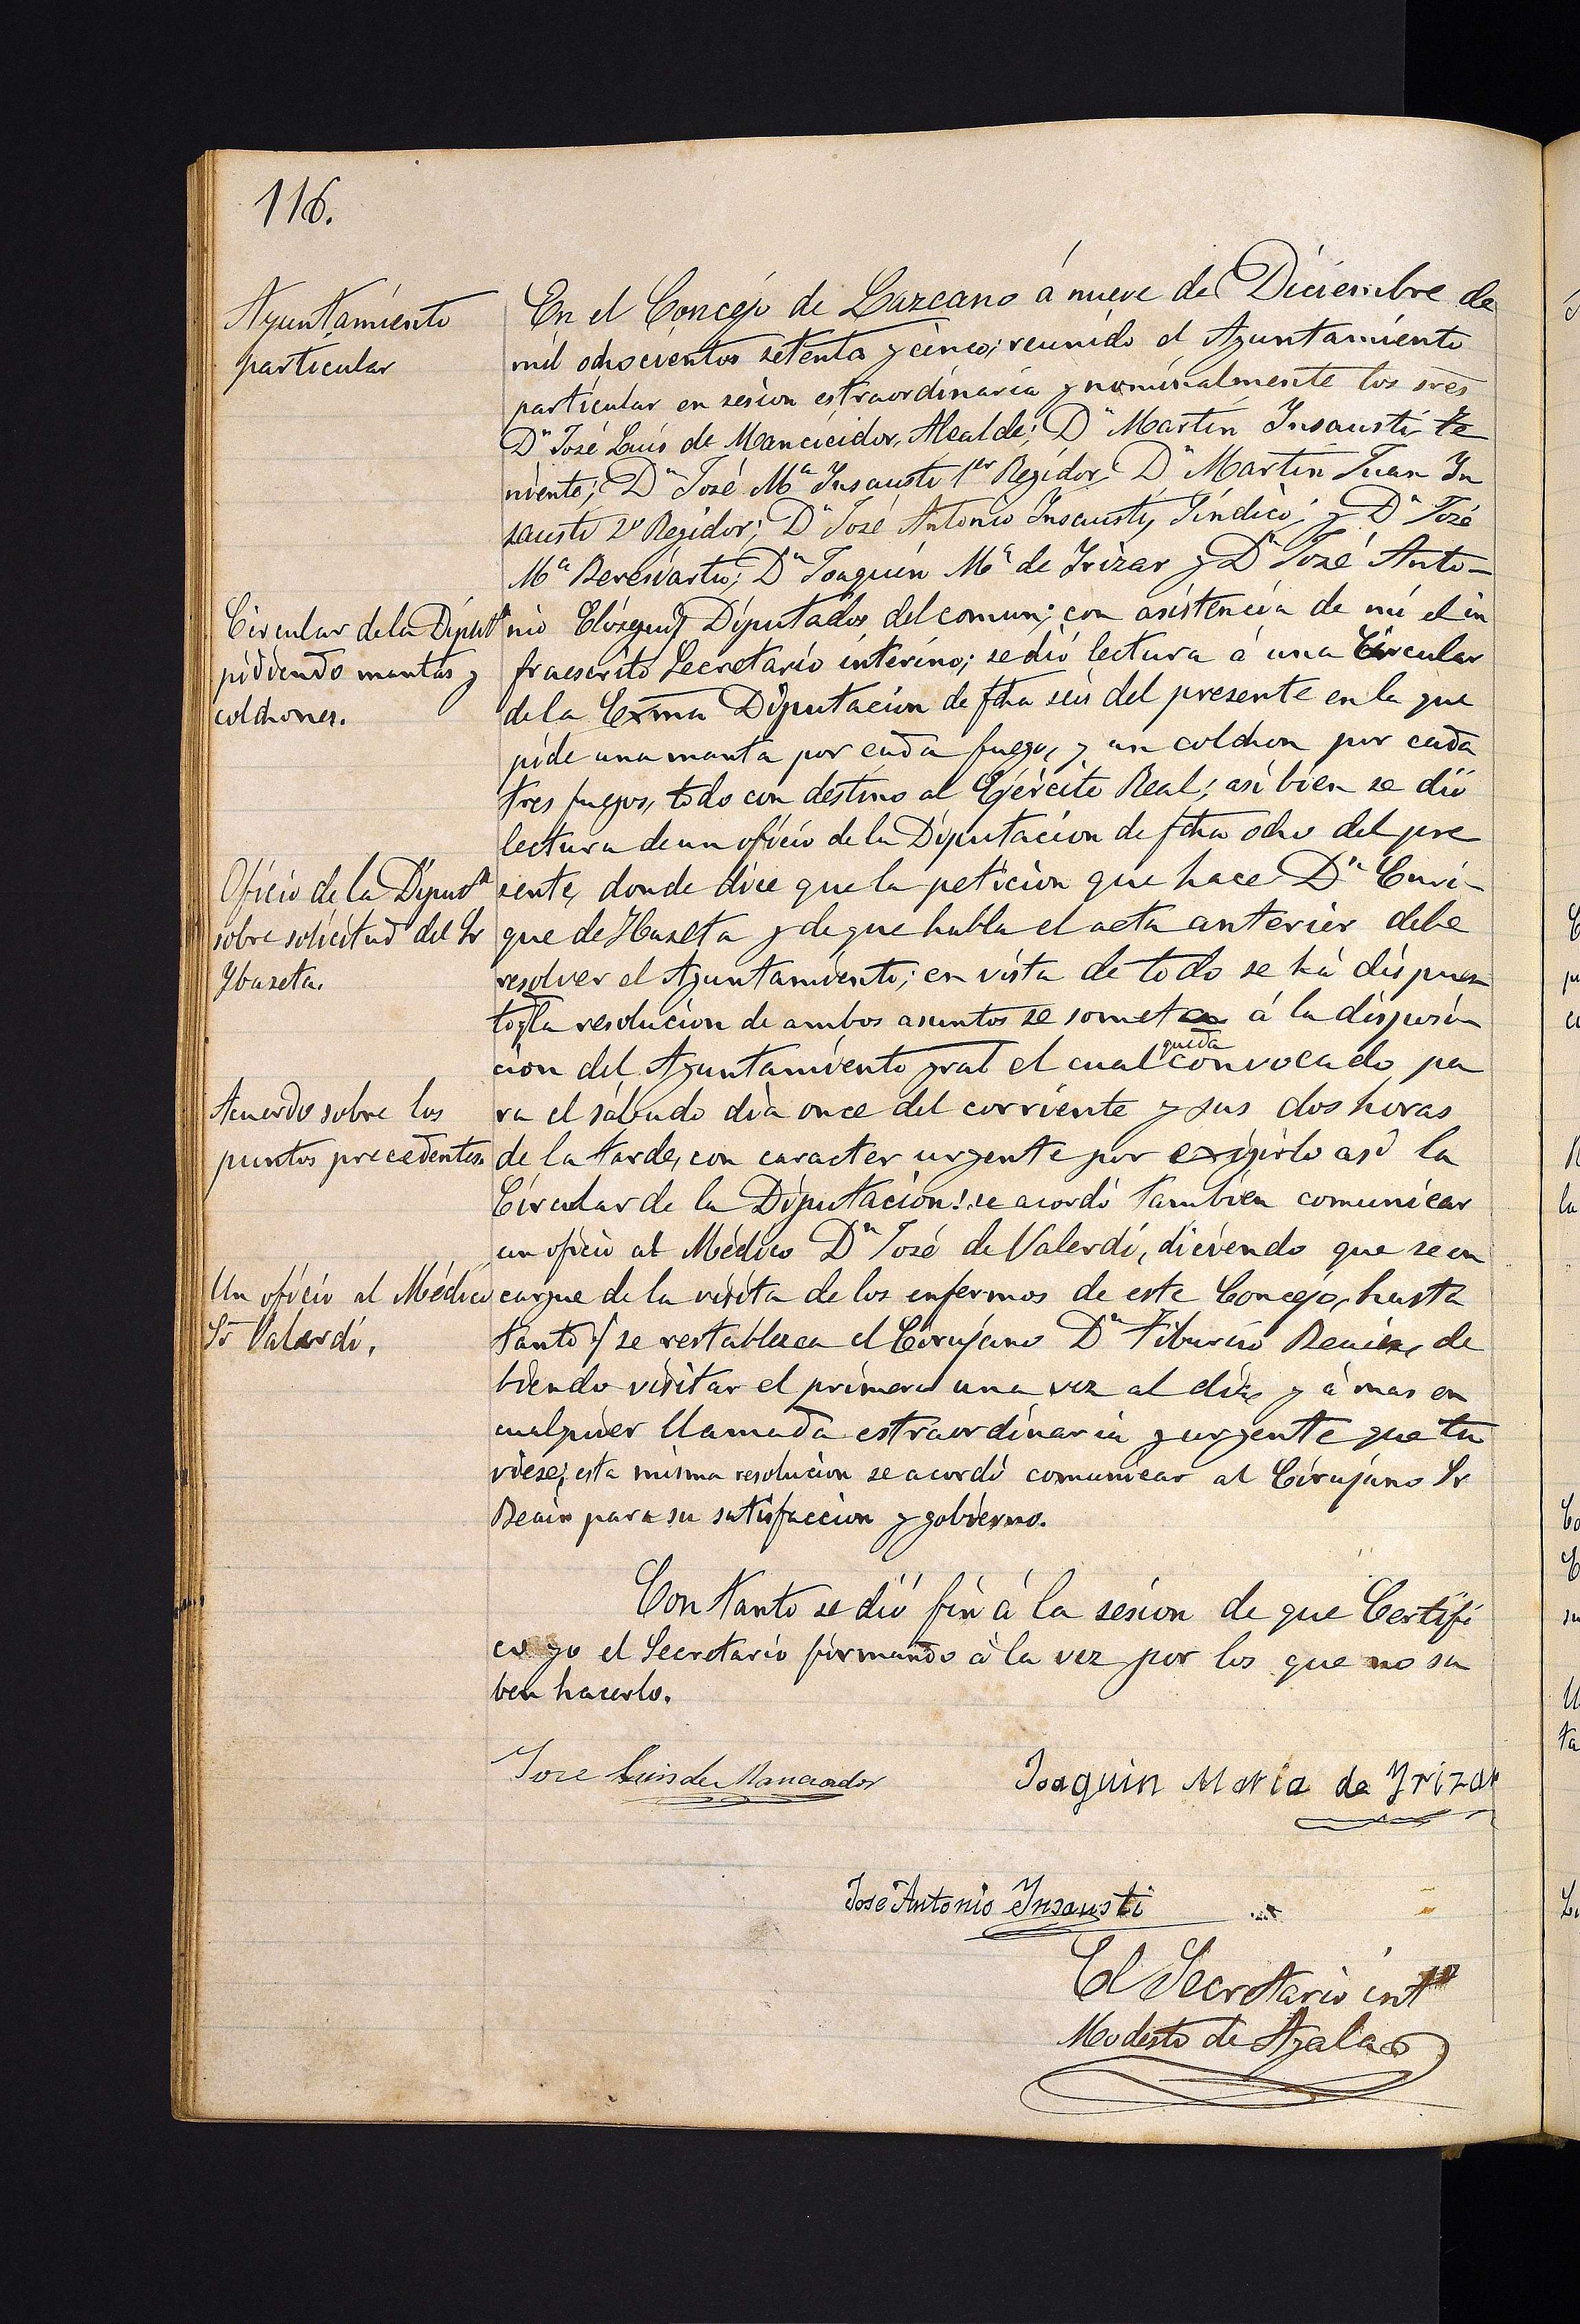 116.
Ayuntamiento
particular
En el Concejo de Lazcano á nueve de Diciembre de
mil ochocientos setenta y cinco; reunido el Ayuntamiento
particular en sesion estraordinaria y nominalmente los sres
Dn José Luis de Mancicidor, Alcalde; Dn Martin Insausti te
niente; Dn José Ma Insausti 1er Regidor; Dn Martin Juan In
sausti 2o Regidor; Dn José Antonio Insausti, Síndico; y Dn José
Ma Beresiartu; Dn Joaquin Ma de Irizar y Dn José Anto-
Circular de la Diputn
pidiendo mantas y
colchones.
nio Elósegui Diputados del comun; con asistencia de mi el in
fraescrito Secretario interino; se dió lectura á una Circular
de la Exma Diputacion de fcha seis del presente en la que
pide una manta por cada fuego, y un colchon por cada
tres fuegos, todo con destino al Ejército Real; asi bien se dió
lectura de un oficio de la Diputacion de fcha ocho del pre
Oficio de la Diputn
sobre solicitud del Sr
Ybazeta.
sente, donde dice que la peticion que hace Dn Enri-
que de Ybazeta y de que habla el acta anterior debe
resolver el Ayuntamiento; en vista de todo se há dispues
to q la resolucion de ambos asuntos se someta á la disposi
cion del Ayuntamiento gral el cual queda convocado pa
Acuerdo sobre los
puntos precedentes.
ra el sábado dia once del corriente y sus dos horas
de la tarde, con caracter urgente por exigirlo asi la
Circular de la Diputacion: se acordó tambien comunicar
un oficio al Médico Dn José de Valerdi, diciendo que se en
Un oficio al Médico
Sr Valerdi.
cargue de la visita de los enfermos de este Concejo, hasta
tanto q se restablezca el Cirujano Dn Tiburcio Beain, de
biendo visitar el primero una vez al dia, y á mas en
cualquier llamada estraordinaria y urgente que tu
viese; esta misma resolucion se acordó comunicar al Cirujano Sr
Beain para su satisfaccion y gobierno.
Con tanto se dió fin á la sesion de que Certifi
co yo el Secretario firmando á la vez por los que no sa
ben hacerlo.
Jose Luis de Mancicidor
Joaquin Maria de Yrizar
José Antonio Ynsausti
El Secretario into
Modesto de Ayala